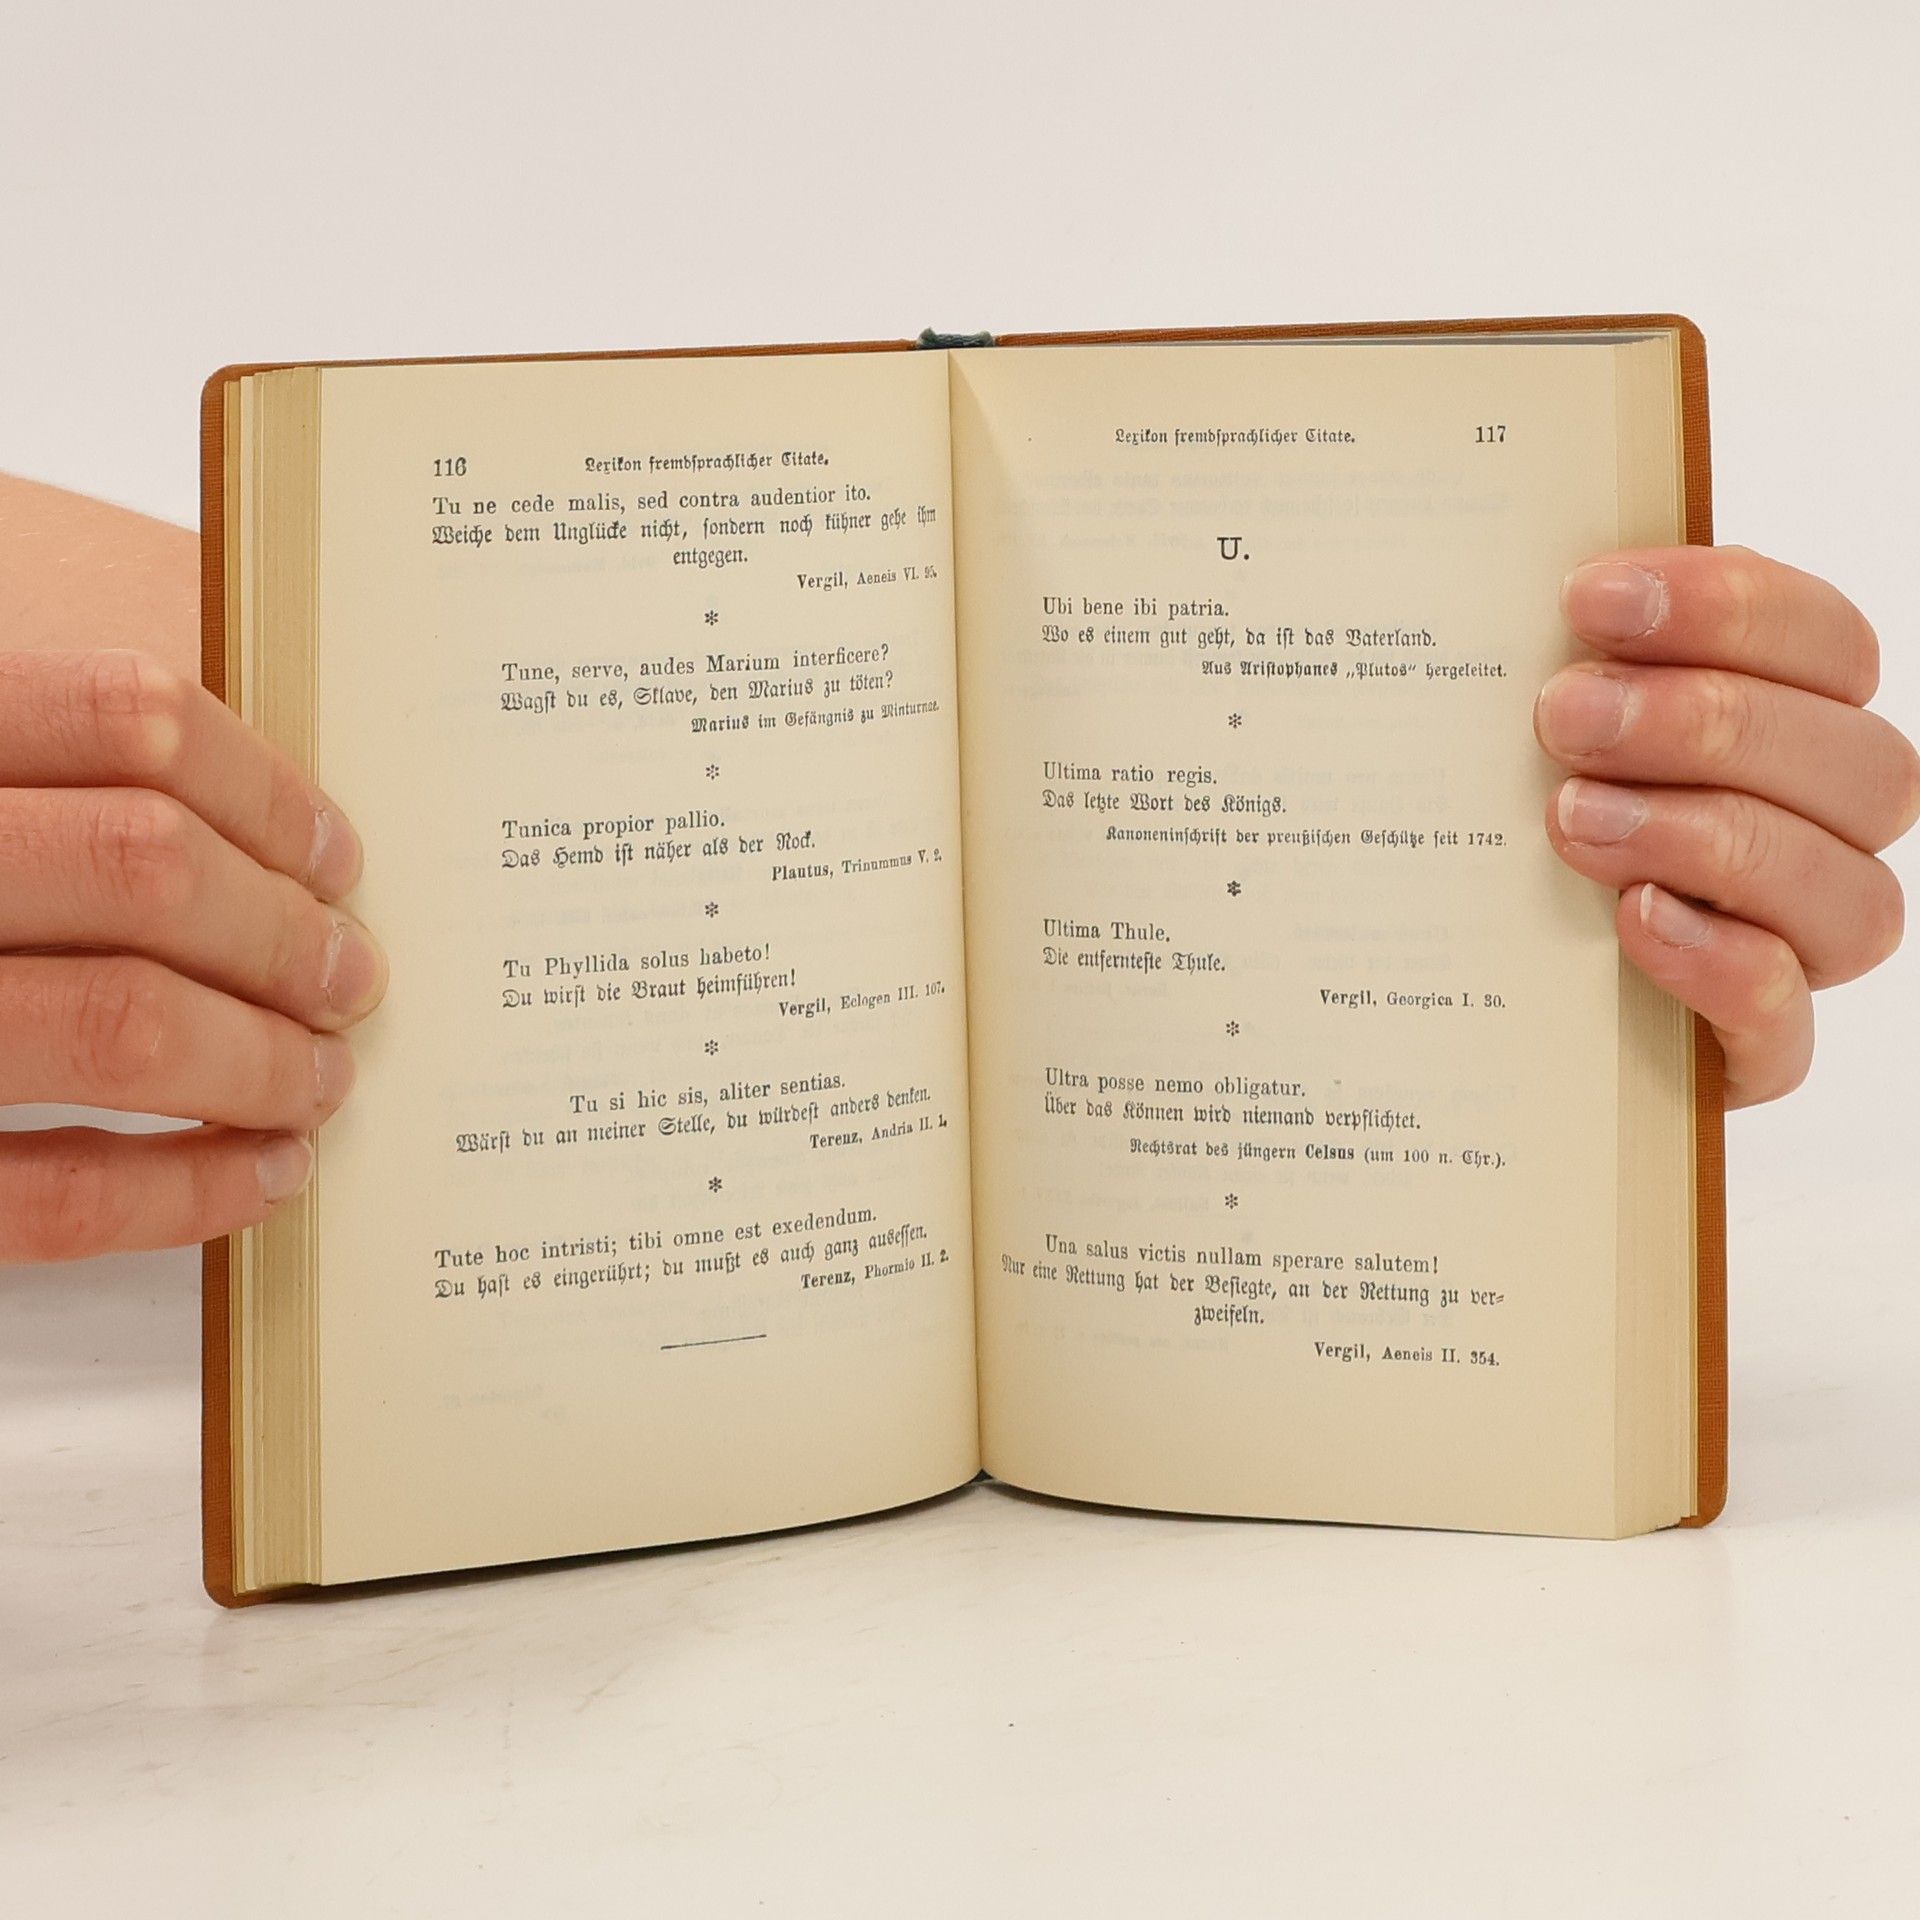 116 Lexikon fremdsprachlicher Citate.
Tu ne cede malis, sed contra audentior ito.
Weiche dem Unglücke nicht, sondern noch kühner gehe ihm
entgegen.
Vergil, Aeneis VI. 95.
*
Tune, serve, audes Marium interficere?
Wagst du es, Sklave, den Marius zu töten?
Marius im Gefängnis zu Minturnae.
*
Tunica propior pallio.
Das Hemd ist näher als der Rock.
Plautus, Trinummus V. 2.
*
Tu Phyllida solus habeto!
Du wirst die Braut heimführen!
Vergil, Eclogen III. 107.
*
Tu si hic sis, aliter sentias.
Wärst du an meiner Stelle, du würdest anders denken.
Terenz, Andria II. 1.
*
Tute hoc intristi; tibi omne est exedendum.
Du hast es eingerührt; du mußt es auch ganz ausessen.
Terenz, Phormio II. 2.
Lexikon fremdsprachlicher Citate. 117
U.
Ubi bene ibi patria.
Wo es einem gut geht, da ist das Vaterland.
Aus Aristophanes „Plutos“ hergeleitet.
*
Ultima ratio regis.
Das letzte Wort des Königs.
Kanoneninschrift der preußischen Geschütze seit 1742.
*
Ultima Thule.
Die entfernteste Thule.
Vergil, Georgica I. 30.
*
Ultra posse nemo obligatur.
Über das Können wird niemand verpflichtet.
Rechtsrat des jüngern Celsus (um 100 n. Chr.).
*
Una salus victis nullam sperare salutem!
Nur eine Rettung hat der Besiegte, an der Rettung zu ver-
zweifeln.
Vergil, Aeneis II. 354.